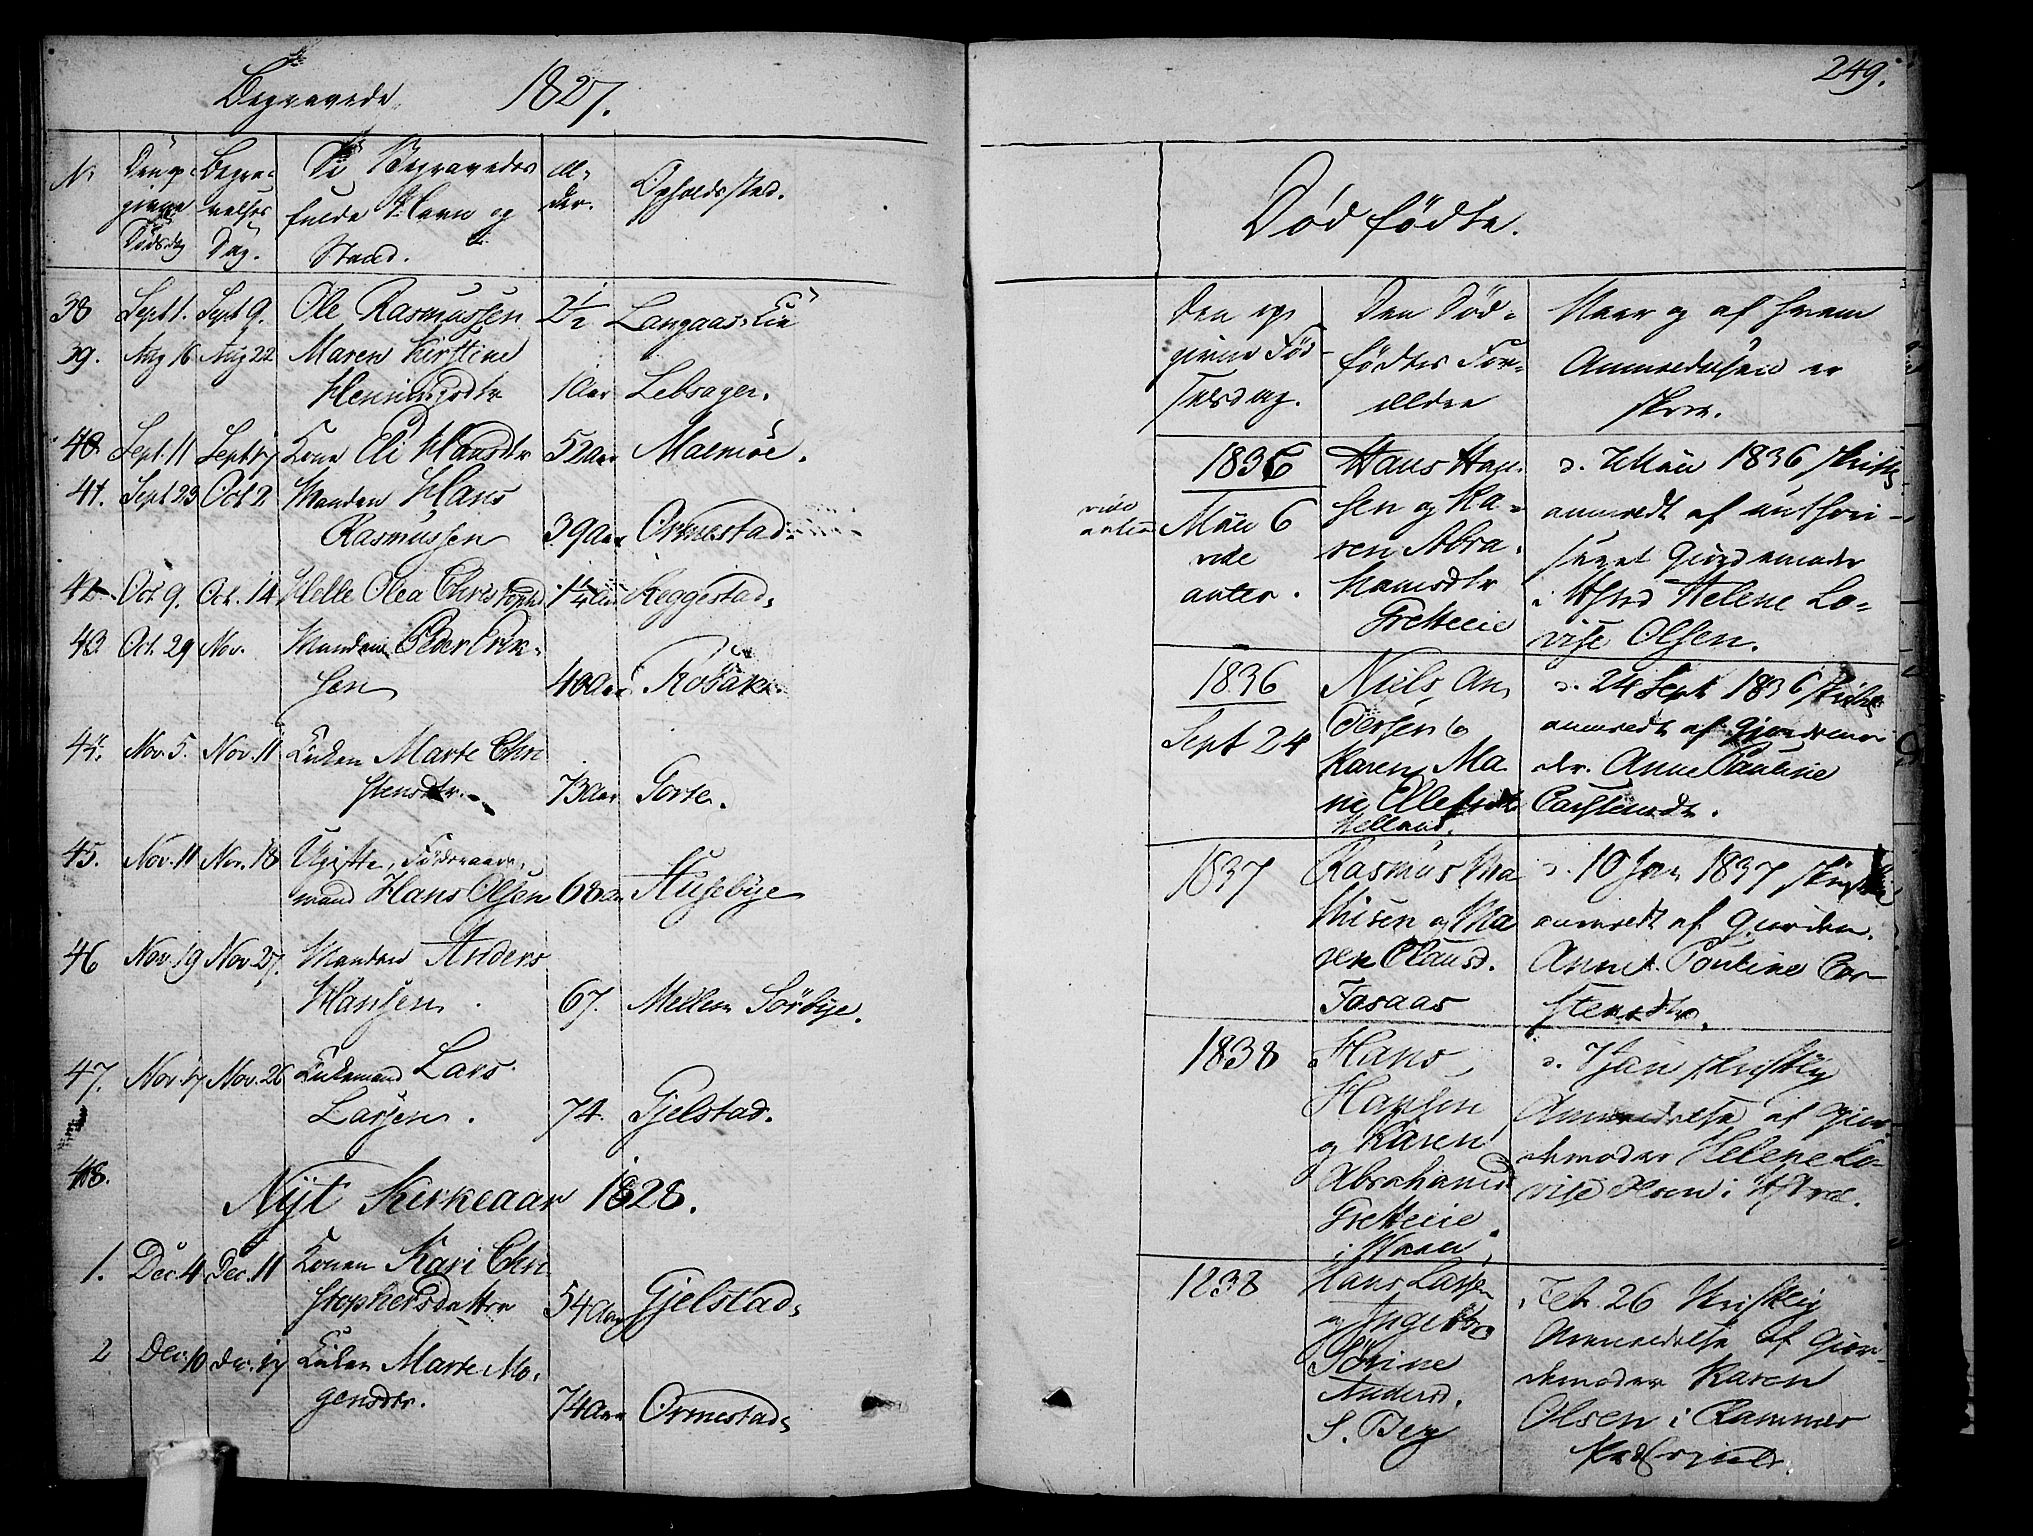 Begravede 1827.
No
Den op-
givne
Dødsdag
Begra-
velses
Dag.
De Begravedes
fulde Navn og
Stand.
Al-
der.
Opholdssted.
38 Sept 1. Sept 9. Ole Rasmussen 2 1/2 Langaas Eie
39. Aug 16 Aug 22 Maren Kirstine
Henningsdtr 1 Aar Lebsager.
40. Sept. 11 Sept 17 Kone Eli Hansdtr 52 Aar Malmøe.
41. Sept 23 Oct 2 Manden Hans
Rasmussen 39 Aar Ormestad
42 Oct. 9. Oct. 14 Helle Olea Christophd 1 1/4 Aar Keggestad,
43 Oct. 29 Nov. Manden Peder Erik-
sen 40 Aar
44. Nov. 5. Nov. 11 Enken Marte Chri
stensdtr. 73 Aar Torse.
45. Nov. 11 Nov. 18 Ugifte, Føderaads-
mand Hans Olsen 68 Aar Husebye
46 Nov. 19 Nov. 27. Manden Anders
Hansen. 67. Mellem Sörbye.
47. Nov 17 Nov. 26 Enkemand Lars
Larsen. 74. Gjelstad.
48.
Nyt Kirkeaar 1828.
1. Dec 4 Dec. 11 Konen Kari Chri
stophersdatter 54 Aar Gjelstad,
2 Dec. 10 Dec. 17 Enken Marte Mo-
gensdtr. 74 Aar Ormestad,
249.
Død fødte.
Den op-
givne Fød-
selsdag.
Den Død-
fødtes For-
ældre
Naar og af hvem
Anmeldelsen er
skeet.
1836
Mai 6
vide
anter.
vide
anter
Hans Han-
sen og Ka-
ren Abra-
hamsdtr
Gretteeie
d. 7 Mai 1836 skriftl
anmeldt af authori-
seret Gjordemoder
i Hfrd Helene Lo-
vise Olsen.
1836
Sept 24
Niels An-
dersen og
Karen Ma
rie Ellefsdtr
Helland.
d. 24 Sept 1836 skriftl
anmeldt af Gjordemo
der. Anne Pauline
Carstensdt.
1837
Rasmus Ma
thisen og Ma
ren Olausd.
Fosaas
d. 10 Jan 1837 skriftl
anmeldt af Gjordem.
Anne Pouline Car-
stensdtr.
1838
Hans
Hansen
og Karen
Abrahamsd
Gretteeie
d. 7 Jan skriftlig
Anmeldelse af Gjor-
demoder Helene Lo-
vise Olsen i Hfrd.
1838
Hans Larsen
og Ingeborg
Sörine
Andersd.
S. Berg
Feb. 26 skriftlig
Anmeldelse af Gjor-
demoder Karen
Olsen i Rammes